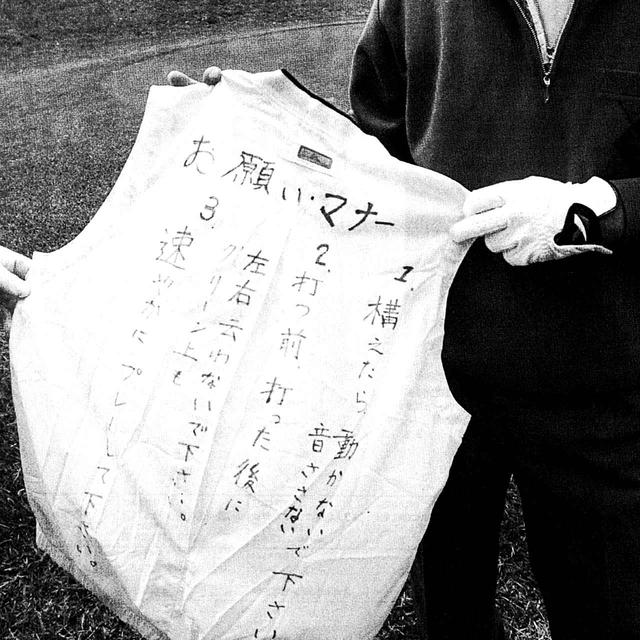 お願い・マナー
1. 構えたら動かない
音ささないで下さい
2. 打つ前、打った後に
左右云わないで下さい。
3. グリーン上も
速やかにプレーして下さい。